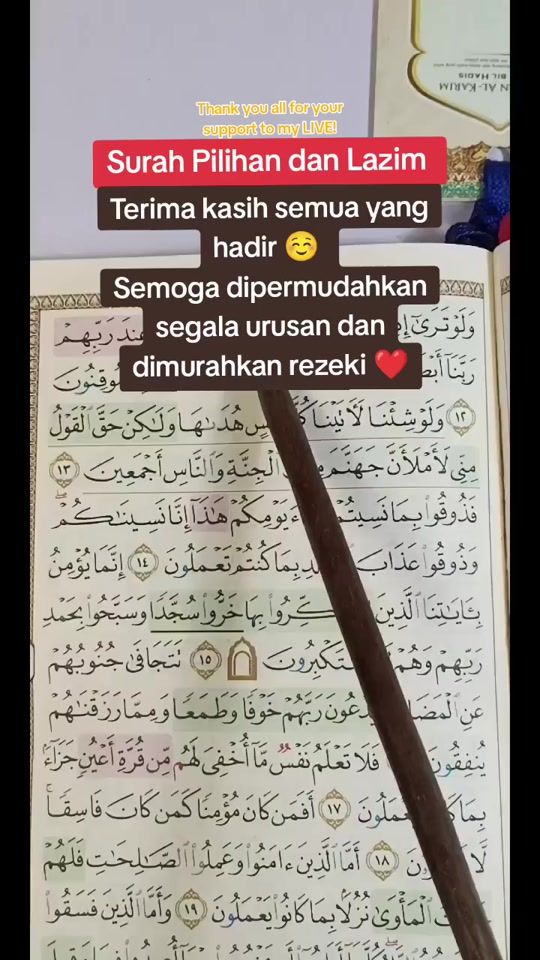 BIL HADIS
AL-KARIM
Thank you all for your
support to my LIVE!
Surah Pilihan dan Lazim
Terima kasih semua yang
hadir ☺️
Semoga dipermudahkan
segala urusan dan
dimurahkan rezeki ❤️
وَلَوْ تَرَىٰٓ عِندَ رَبِّهِمْ
رَبَّنَآ مُوقِنُونَ
١٢ وَلَوْ شِئْنَا لَأٓتَيْنَا هُدَىٰهَا وَلَـٰكِنْ حَقَّ ٱلْقَوْلُ
مِنِّى لَأَمْلَأَنَّ جَهَنَّمَ ٱلْجِنَّةِ وَٱلنَّاسِ أَجْمَعِينَ ١٣
فَذُوقُوا۟ بِمَا نَسِيتُمْ يَوْمِكُمْ هَـٰذَآ إِنَّا نَسِينَـٰكُمْ ۖ
وَذُوقُوا۟ عَذَابَ بِمَا كُنتُمْ تَعْمَلُونَ ١٤ إِنَّمَا يُؤْمِنُ
بِـَٔايَـٰتِنَا ٱلَّذِينَ ذُكِّرُوا۟ بِهَا خَرُّوا۟ سُجَّدًا وَسَبَّحُوا۟ بِحَمْدِ
رَبِّهِمْ وَهُمْ يَسْتَكْبِرُونَ ۩ ١٥ تَتَجَافَىٰ جُنُوبُهُمْ
عَنِ ٱلْمَضَاجِعِ يَدْعُونَ رَبَّهُمْ خَوْفًا وَطَمَعًا وَمِمَّا رَزَقْنَـٰهُمْ
يُنفِقُونَ فَلَا تَعْلَمُ نَفْسٌ مَّآ أُخْفِىَ لَهُم مِّن قُرَّةِ أَعْيُنٍ جَزَآءًۢ
بِمَا كَانُوا۟ يَعْمَلُونَ ١٧ أَفَمَن كَانَ مُؤْمِنًا كَمَن كَانَ فَاسِقًا ۚ
لَّا ١٨ أَمَّا ٱلَّذِينَ ءَامَنُوا۟ وَعَمِلُوا۟ ٱلصَّـٰلِحَـٰتِ فَلَهُمْ
ٱلْمَأْوَىٰ نُزُلًۢا بِمَا كَانُوا۟ يَعْمَلُونَ ١٩ وَأَمَّا ٱلَّذِينَ فَسَقُوا۟